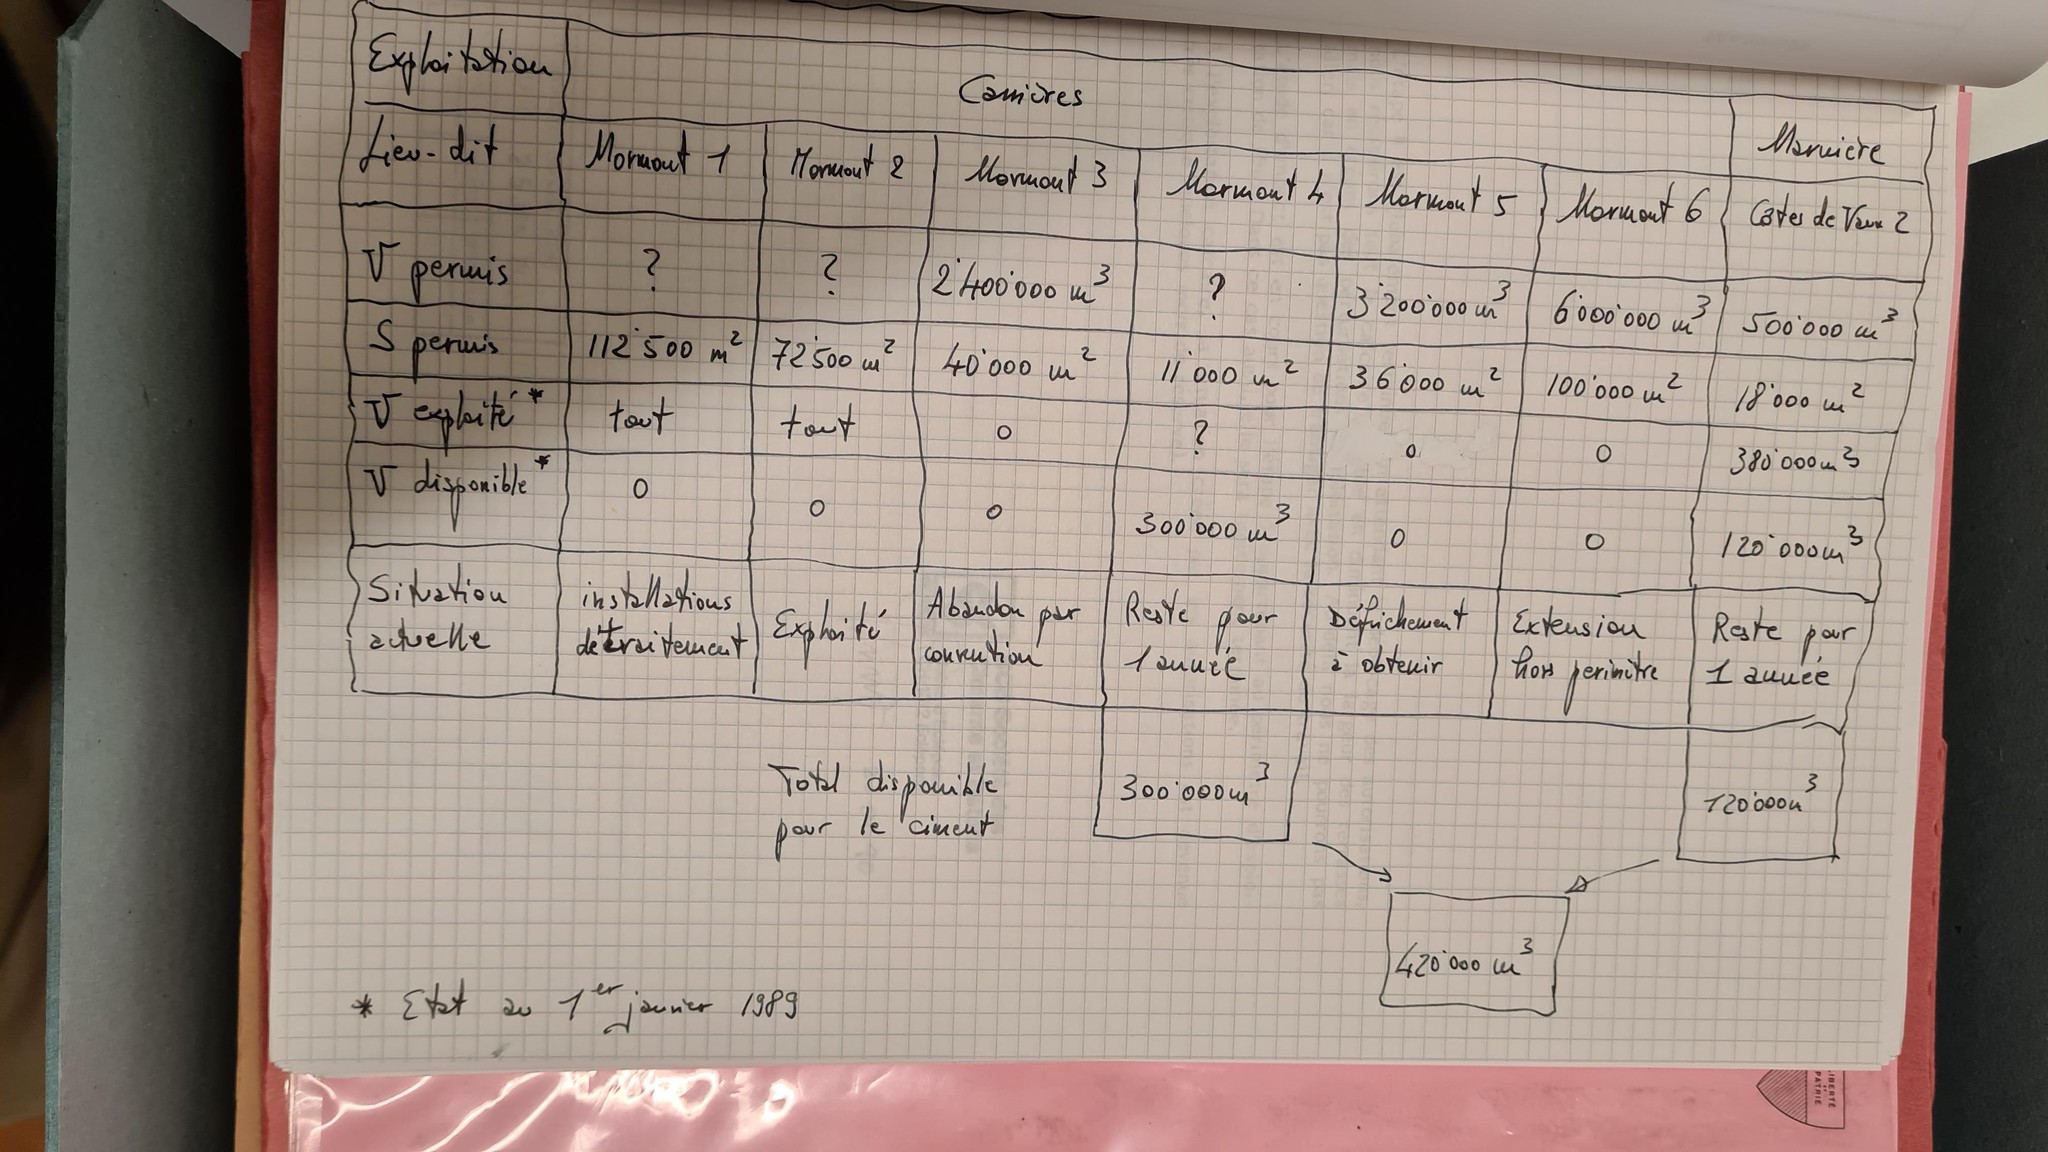 Exploitation
Carrières
Marnière
Lieu-dit Mormont 1 Mormont 2 Mormont 3 Mormont 4 Mormont 5 Mormont 6 Côtes de Vaux 2
V permis ? ? 2'400'000 m³ ? 3'200'000 m³ 6'000'000 m³ 500'000 m³
S permis 112'500 m² 72'500 m² 40'000 m² 11'000 m² 36'000 m² 100'000 m² 18'000 m²
V exploité* tout tout 0 ? 0 0 380'000 m³
V disponible* 0 0 0 300'000 m³ 0 0 120'000 m³
Situation installations Exploité Abandon par Reste pour Défrichement Extension Reste pour
actuelle de traitement convention 1 année à obtenir hors périmètre 1 année
Total disponible 300'000 m³ 120'000 m³
pour le ciment
420'000 m³
* Etat au 1er janvier 1989
LIBERTÉ
ET
PATRIE